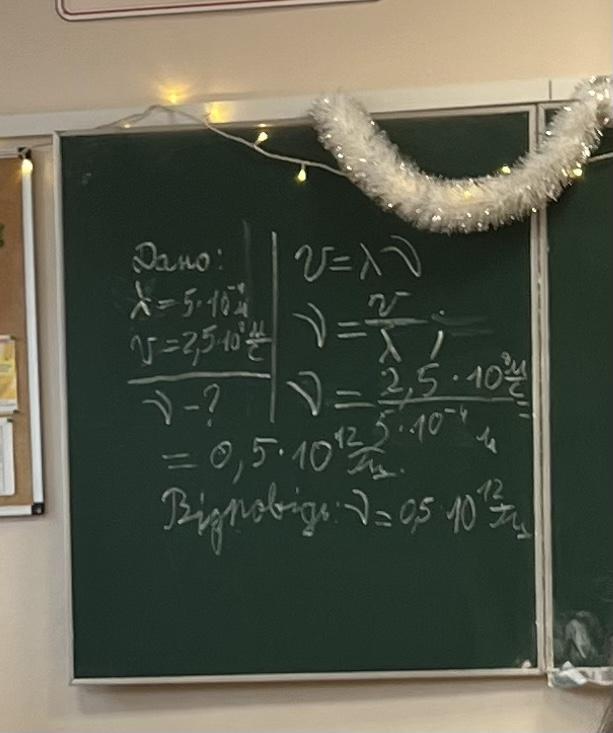 Дано:
λ = 5·10⁻⁴ м
v = 2,5·10⁸ м/с
ν - ?
v = λν
ν = v/λ ;
ν = 2,5·10⁸ м/с / 5·10⁻⁴ м =
= 0,5·10¹² Гц.
Відповідь: ν = 0,5·10¹² Гц